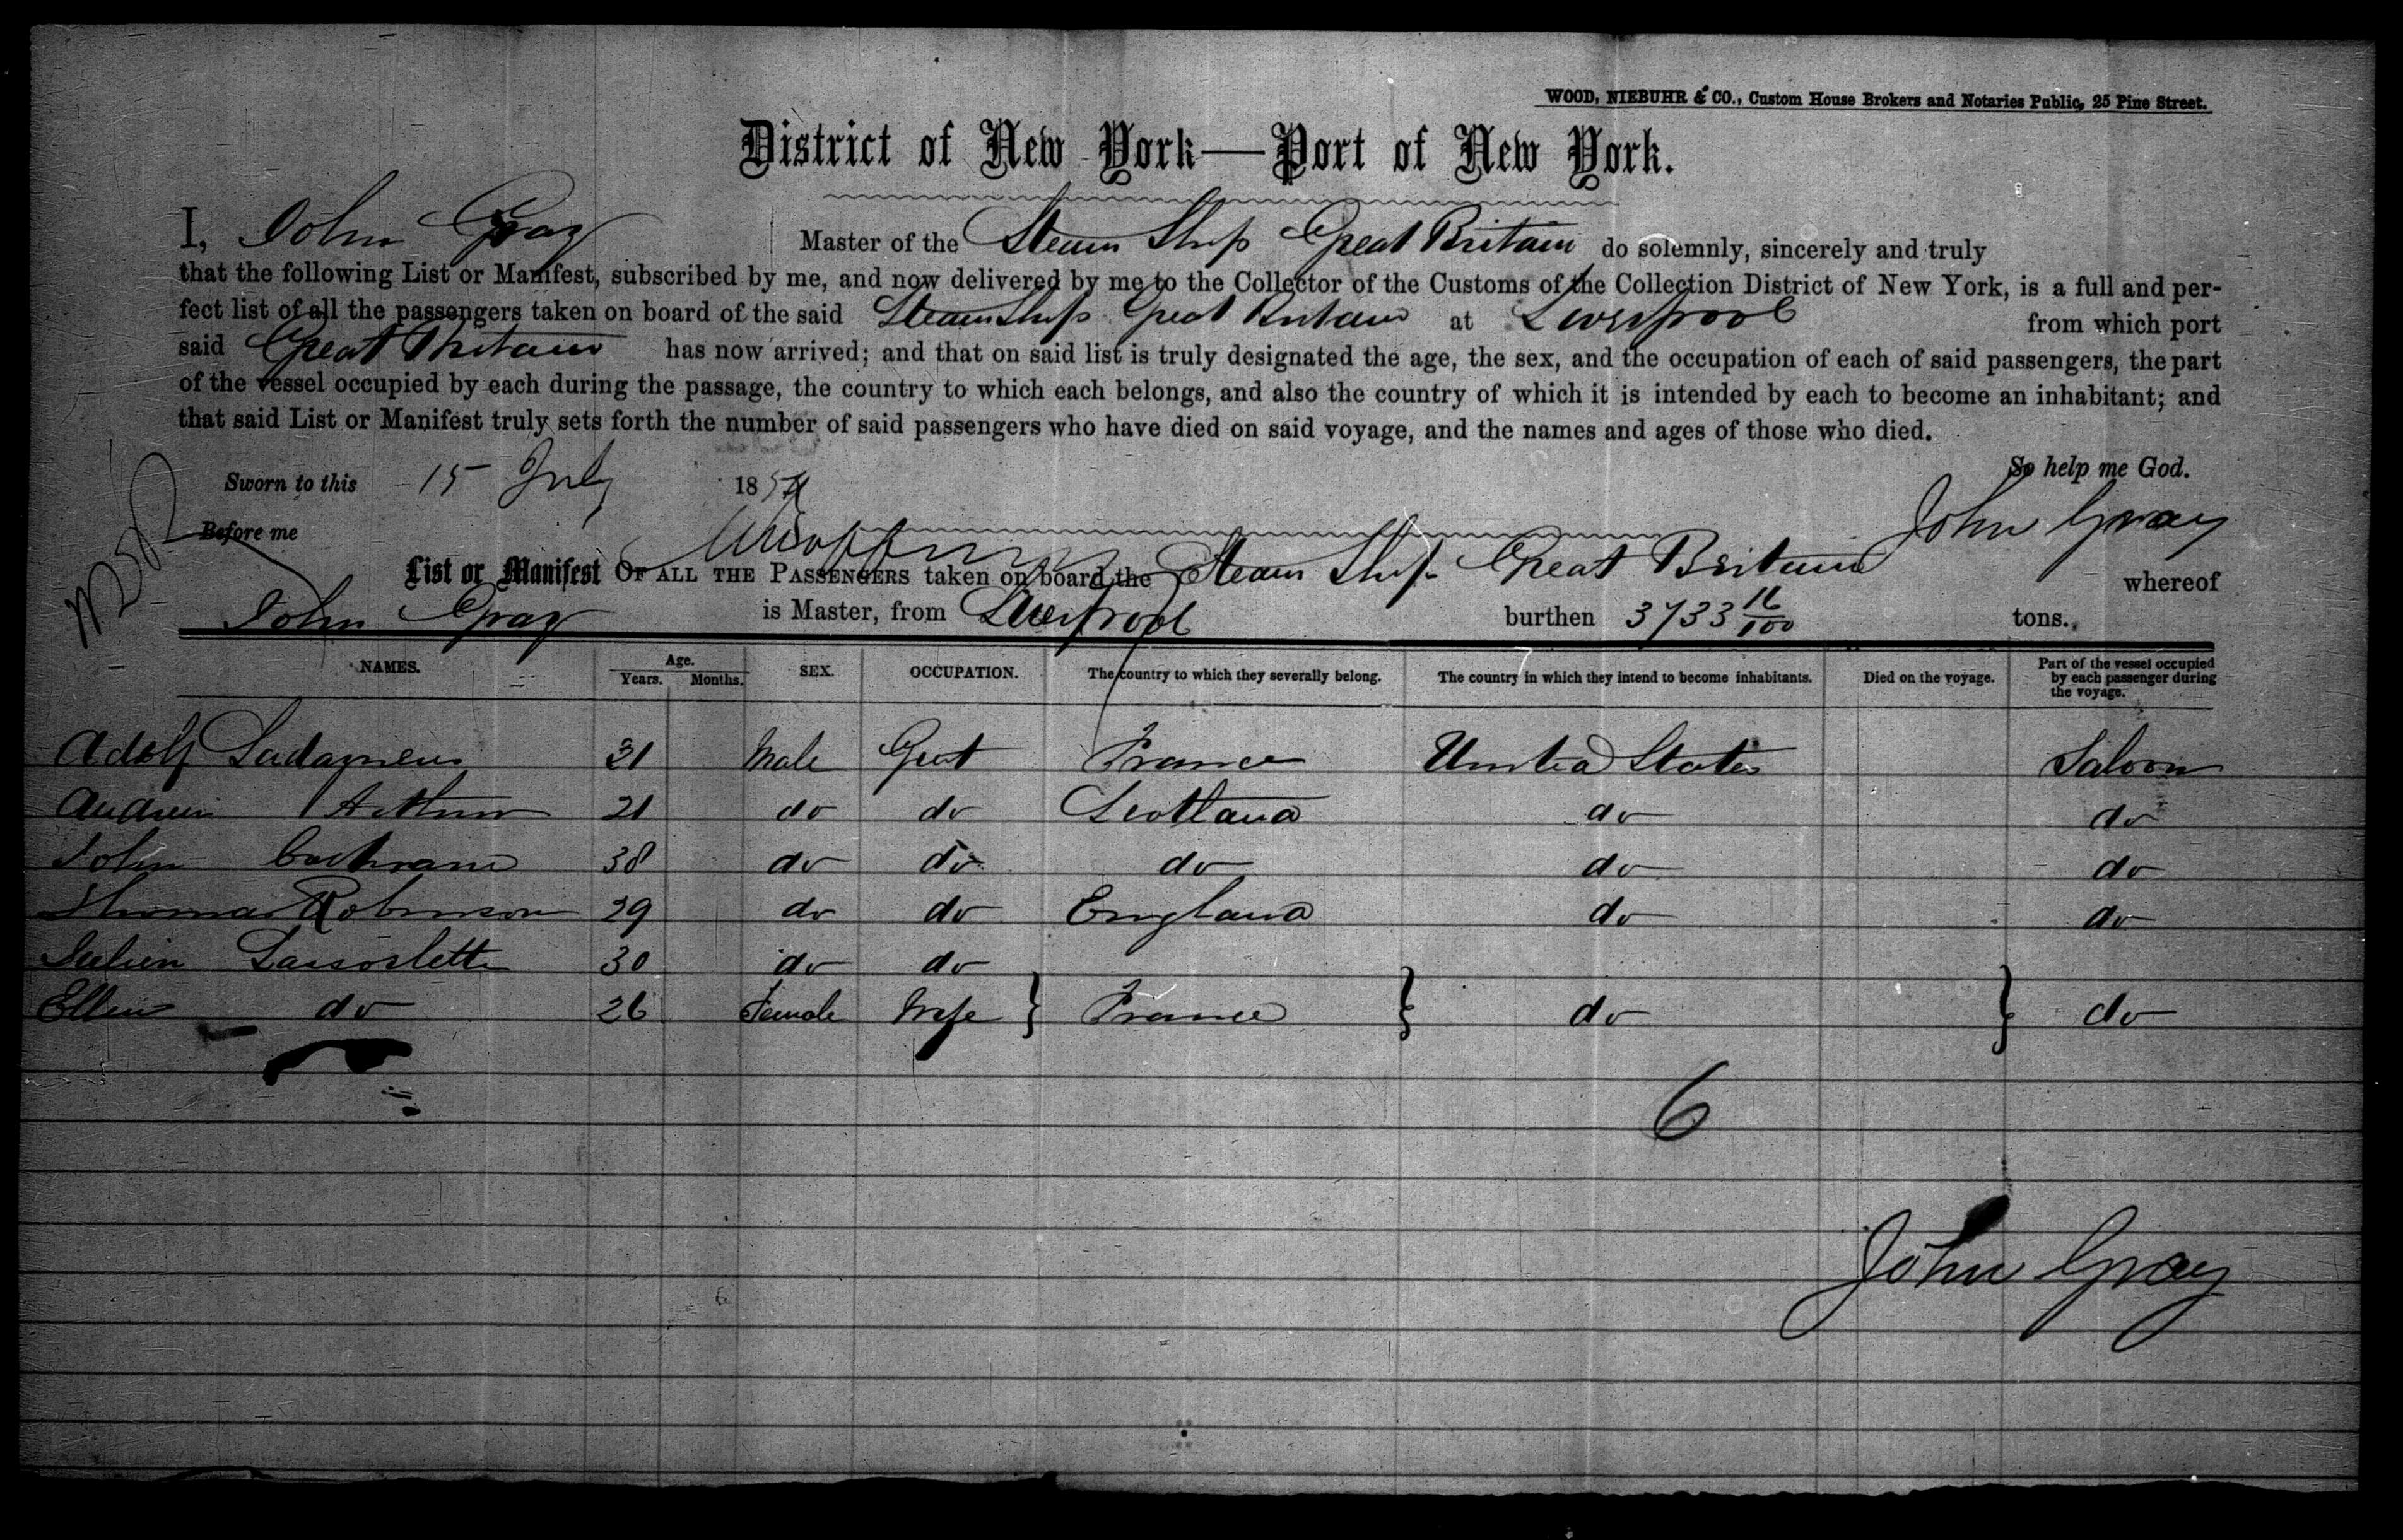 WOOD, NIEBUHR & CO., Custom House Brokers and Notaries Public, 25 Pine Street.
District of New York—Port of New York.
I, John Gray Master of the Steam Ship Great Britain do solemnly, sincerely and truly
that the following List or Manifest, subscribed by me, and now delivered by me to the Collector of the Customs of the Collection District of New York, is a full and per-
fect list of all the passengers taken on board of the said Steam Ship Great Britain at Liverpool from which port
said Great Britain has now arrived; and that on said list is truly designated the age, the sex, and the occupation of each of said passengers, the part
of the vessel occupied by each during the passage, the country to which each belongs, and also the country of which it is intended by each to become an inhabitant; and
that said List or Manifest truly sets forth the number of said passengers who have died on said voyage, and the names and ages of those who died.
So help me God.
Sworn to this 15 July 185
Before me
John Gray
List or Manifest OF ALL THE PASSENGERS taken on board the Steam Ship Great Britain whereof
John Gray is Master, from Liverpool burthen 3733 16/100 tons.
NAMES. Age. Years. Months. SEX. OCCUPATION. The country to which they severally belong. The country in which they intend to become inhabitants. Died on the voyage. Part of the vessel occupied by each passenger during the voyage.
Adolf 31 Male Gent France United States Saloon
Andrew Arthur 21 do do Scotland do do
John Cochrane 38 do do do do do
Thomas Robinson 29 do do England do do
Julien 30 do do
Ellen do 26 Female Wife } France } do } do
6
John Gray